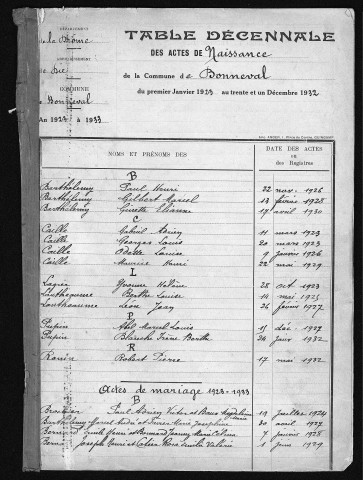 DÉPARTEMENT
de la Drôme
ARRONDISSEMENT
de Die
COMMUNE
de Bonneval
An 1923 à 1933
TABLE DÉCENNALE
DES ACTES DE Naissance
de la Commune de Bonneval
du premier Janvier 1923 au trente et un Décembre 1932
NOMS ET PRÉNOMS DES
DATE DES ACTES
ou
des Registres
B
Barthélemy Paul Henri 22 nov. 1926
Barthélemy Gilbert Marcel 13 février 1928
Barthélemy Ginette Eliane 17 avril 1930
C
Caille Gabriel Henry 11 mars 1923
Caille Georges Louis 20 mars 1923
Caille Odette Louise 9 janvier 1926
Caille Maurice Henri 22 mai 1929
L
Lagier Yvonne Hélène 28 oct 1923
Berthe Louise 14 mai 1925
Léon Jean 24 février 1927
P
Pupin Abel Marcel Louis 15 déc. 1929
Pupin Blanche Irène Berthe 24 janv 1932
R
Robert Pierre 17 mai 1932
Actes de mariage 1923-1933
B
Paul Henry Victor et 19 juillet 1924
Barthélemy Marcel André et 30 avril 1927
Bernard Emile Henri et 7 janvier 1928
Joseph Henri et Rose Emilie Valérie 1 juin 1929